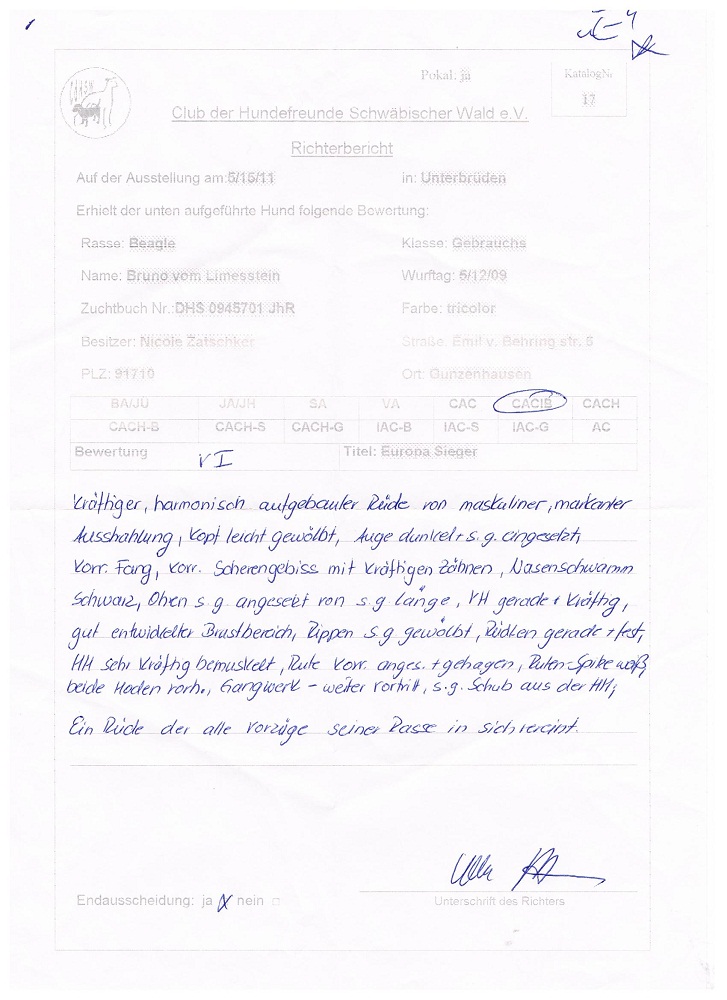 Pokal. ja
KatalogNr
17
Club der Hundefreunde Schwäbischer Wald e.V.
Richterbericht
Auf der Ausstellung am: 5/15/11 in: Unterbrüden
Erhielt der unten aufgeführte Hund folgende Bewertung:
Rasse: Beagle Klasse: Gebrauchs
Name: Bruno vom Limesstein Wurftag: 5/12/09
Zuchtbuch Nr.: DHS 0945701 JhR Farbe: tricolor
Besitzer: Nicole Zatschker Straße: Emil v. Behring str. 6
PLZ: 91710 Ort: Gunzenhausen
BA/JÜ JA/JH SA VA CAC CACIB CACH
CACH-B CACH-S CACH-G IAC-B IAC-S IAC-G AC
Bewertung VI Titel: Europa Sieger
Kräftiger, harmonisch aufgebauter Rüde von maskaliner, markanter
Ausshahlung, Kopf leicht gewölbt, Auge dunkel + s.g. angesetzt,
Korr. Fang, Korr. Scherengebiss mit Kräftigen Zähnen, Nasenschwamm
Schwarz, Ohren s.g. angesetzt von s.g länge, VH gerade + Kräftig,
gut entwickelter Brustbereich, Rippen s.g gewölbt, Rücken gerade + fest,
HH sehr Kräftig bemuskelt, Rute Korr. anges. + getragen, Ruten-Spitze weiß,
beide Hoden vorh., Gangwerk - weiter Vortritt, s.g. Schub aus der HH;
Ein Rüde der alle Vorzüge seiner Rasse in sich vereint.
Endausscheidung: ja X nein
Unterschrift des Richters